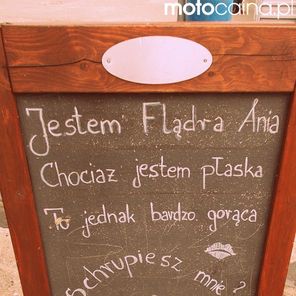 motocaina.pl
Jestem Flądra Ania
Chociaż jestem płaska
To jednak bardzo gorąca
Schrupiesz mnie?